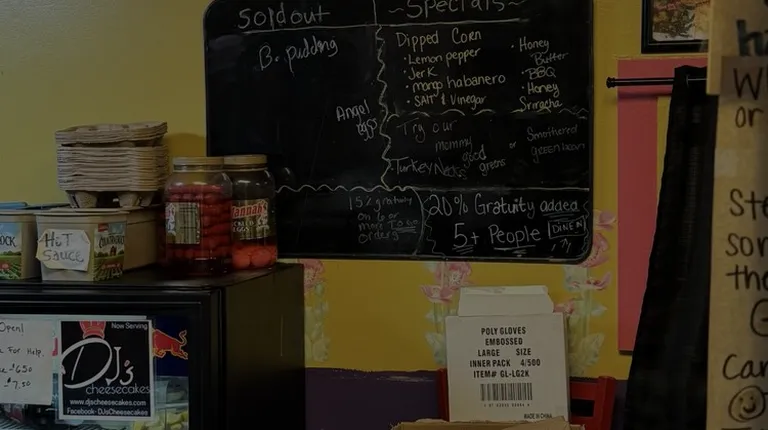 Soldout
B. pudding
Angel
eggs
~Specials~
Dipped Corn
• Lemon pepper
• Jerk
• mango habanero
• SAlT & Vinegar
• Honey
Butter
• BBQ
• Honey
Sriracha
Try our
mommy
good
Turkey Necks
greens
or
Smothered
green bean
15% gratuity
on 6 or
more TO GO
orders
20% Gratuity added
5+ People
DINE IN
HOT
SAUCE
Now Serving
DJ's
cheesecakes
www.djscheesecakes.com
Facebook-DJsCheesecakes
Open!
For Help,
$6.50
$7.50
POLY GLOVES
EMBOSSED
LARGE SIZE
INNER PACK 4/500
ITEM# GL-LG2K
MADE IN CHINA
or